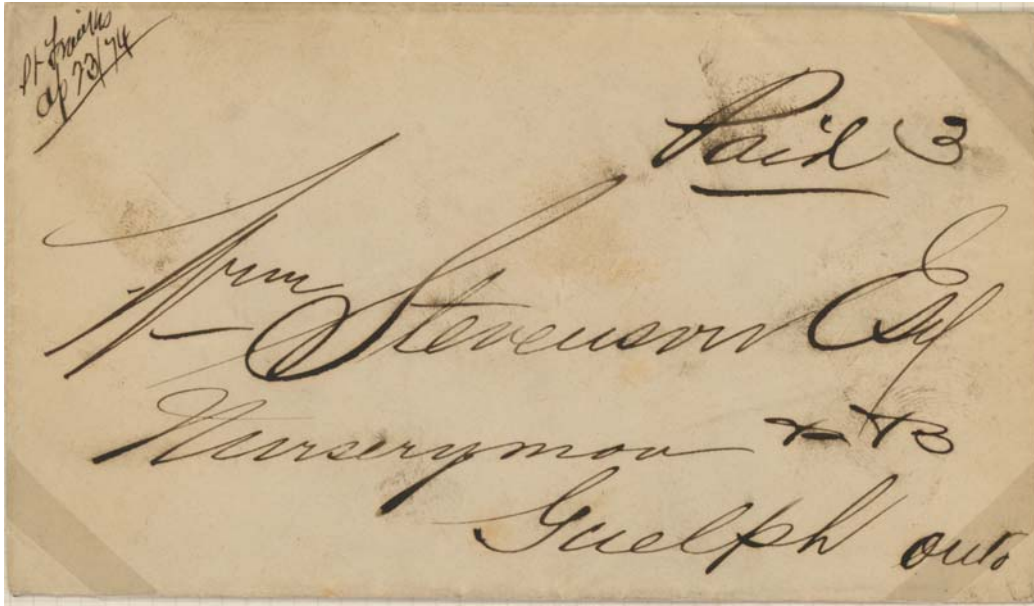 Pt Francis
Ap 23/74
Paid 3
Wm Stevenson Esq
Nurseryman
Guelph Onto